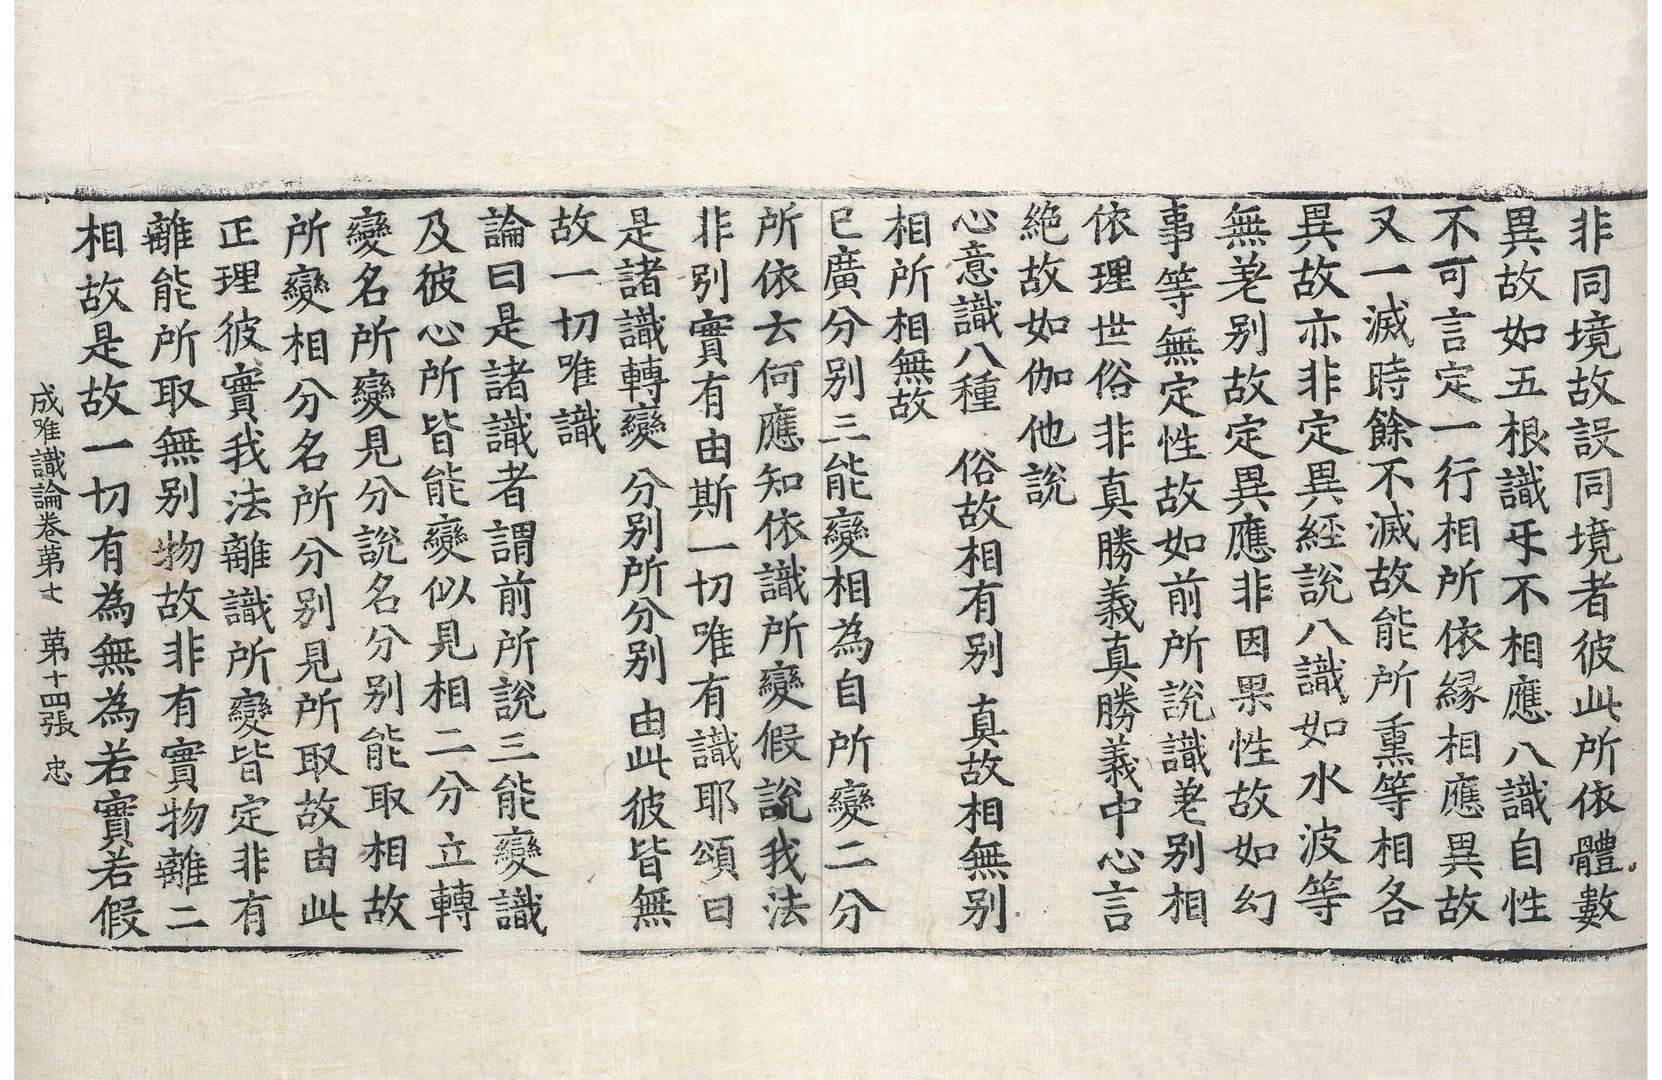 非同境故設同境者彼此所依體數
異故如五根識㸦不相應八識自性
不可言定一行相所依緣相應異故
又一滅時餘不滅故能所熏等相各
異故亦非定異經說八識如水波等
無差别故定異應非因果性故如幻
事等無定性故如前所說識差别相
依理世俗非真勝義真勝義中心言
絶故如伽他說
心意識八種　俗故相有别　真故相無别
相所相無故
已廣分别三能變相為自所變二分
所依云何應知依識所變假說我法
非别實有由斯一切唯有識耶頌曰
是諸識轉變　分别所分别　由此彼皆無
故一切唯識
論曰是諸識者謂前所說三能變識
及彼心所皆能變似見相二分立轉
變名所變見分說名分别能取相故
所變相分名所分别見所取故由此
正理彼實我法離識所變皆定非有
離能所取無别物故非有實物離二
相故是故一切有為無為若實若假
成唯識論卷第七　第十四張　忠